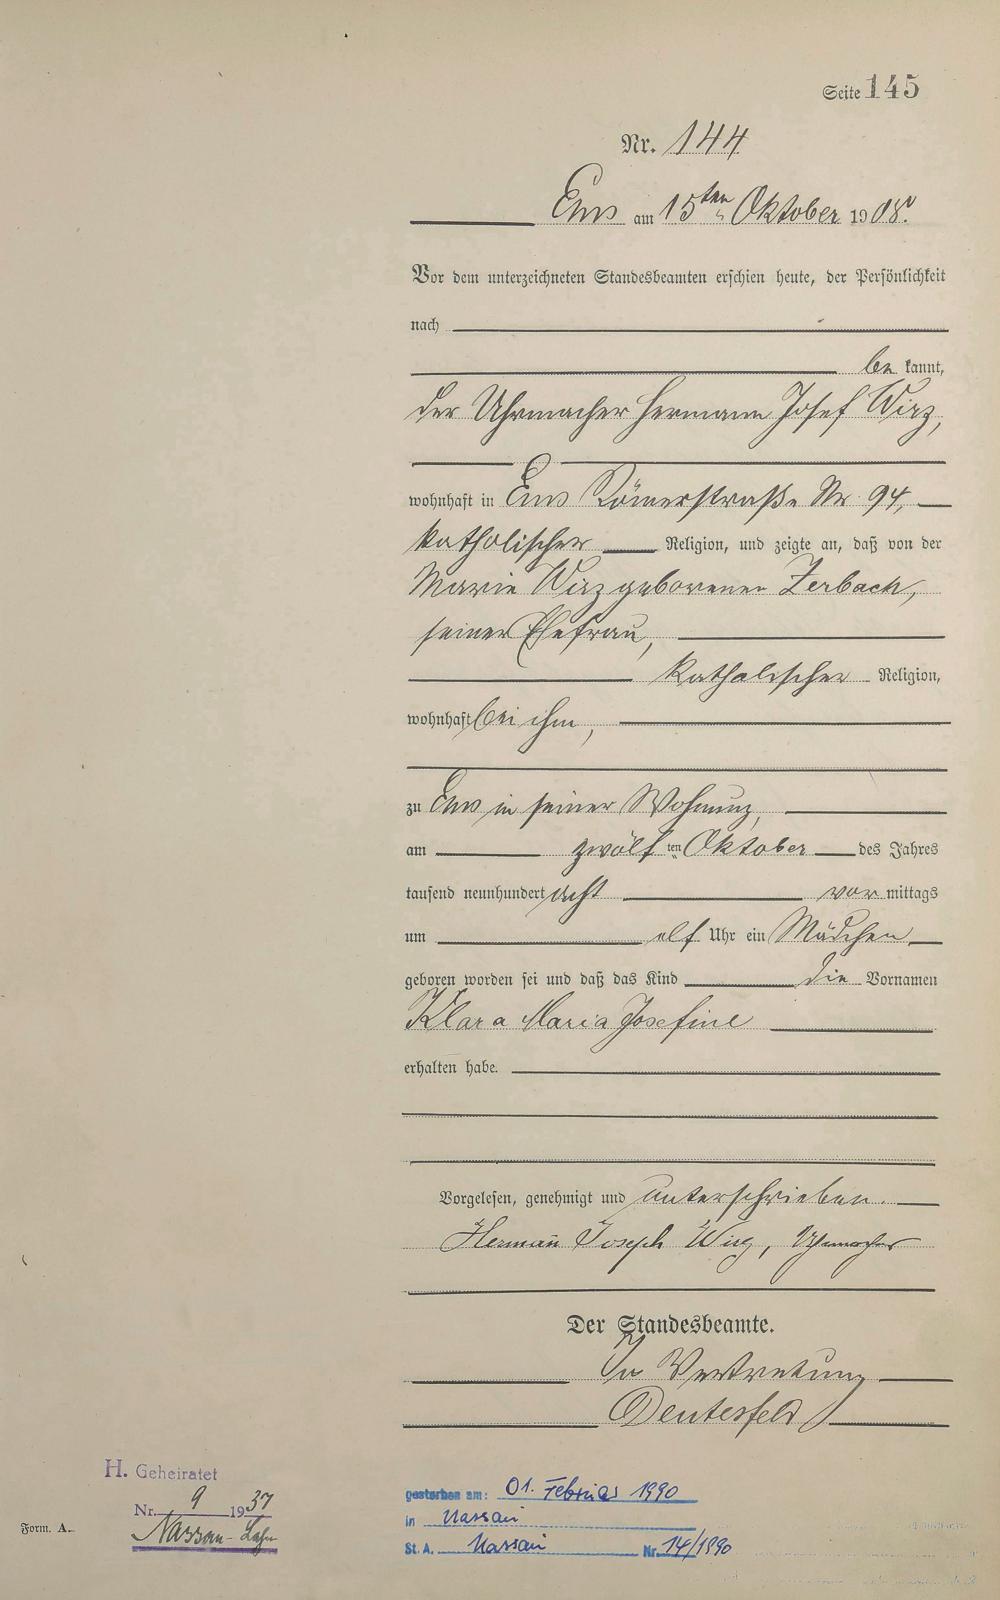 Seite 145
Nr. 144
Ems am 15ten Oktober 1908.
Vor dem unterzeichneten Standesbeamten erschien heute, der Persönlichkeit
nach
be kannt,
der Uhrmacher Hermann Josef Wirz,
wohnhaft in Ems Römerstraße Nr. 94,
katholischer Religion, und zeigte an, daß von der
Marie Wirz geborenen Zerbach,
seiner Ehefrau,
katholischer Religion,
wohnhaft bei ihm,
zu Ems in seiner Wohnung,
am zwölf ten Oktober des Jahres
tausend neunhundert acht vor mittags
um elf Uhr ein Mädchen
geboren worden sei und daß das Kind die Vornamen
Klara Maria Josefine
erhalten habe.
Vorgelesen, genehmigt und unterschrieben.
Hermann Joseph Wirz, Uhrmacher
Der Standesbeamte.
In Vertretung
Deutesfeld
H. Geheiratet
Nr. 9 1937
Nassau-Lahn
Form. A.
gestorben am: 01. Februar 1990
in Nassau
St. A. Nassau Nr. 14/1990